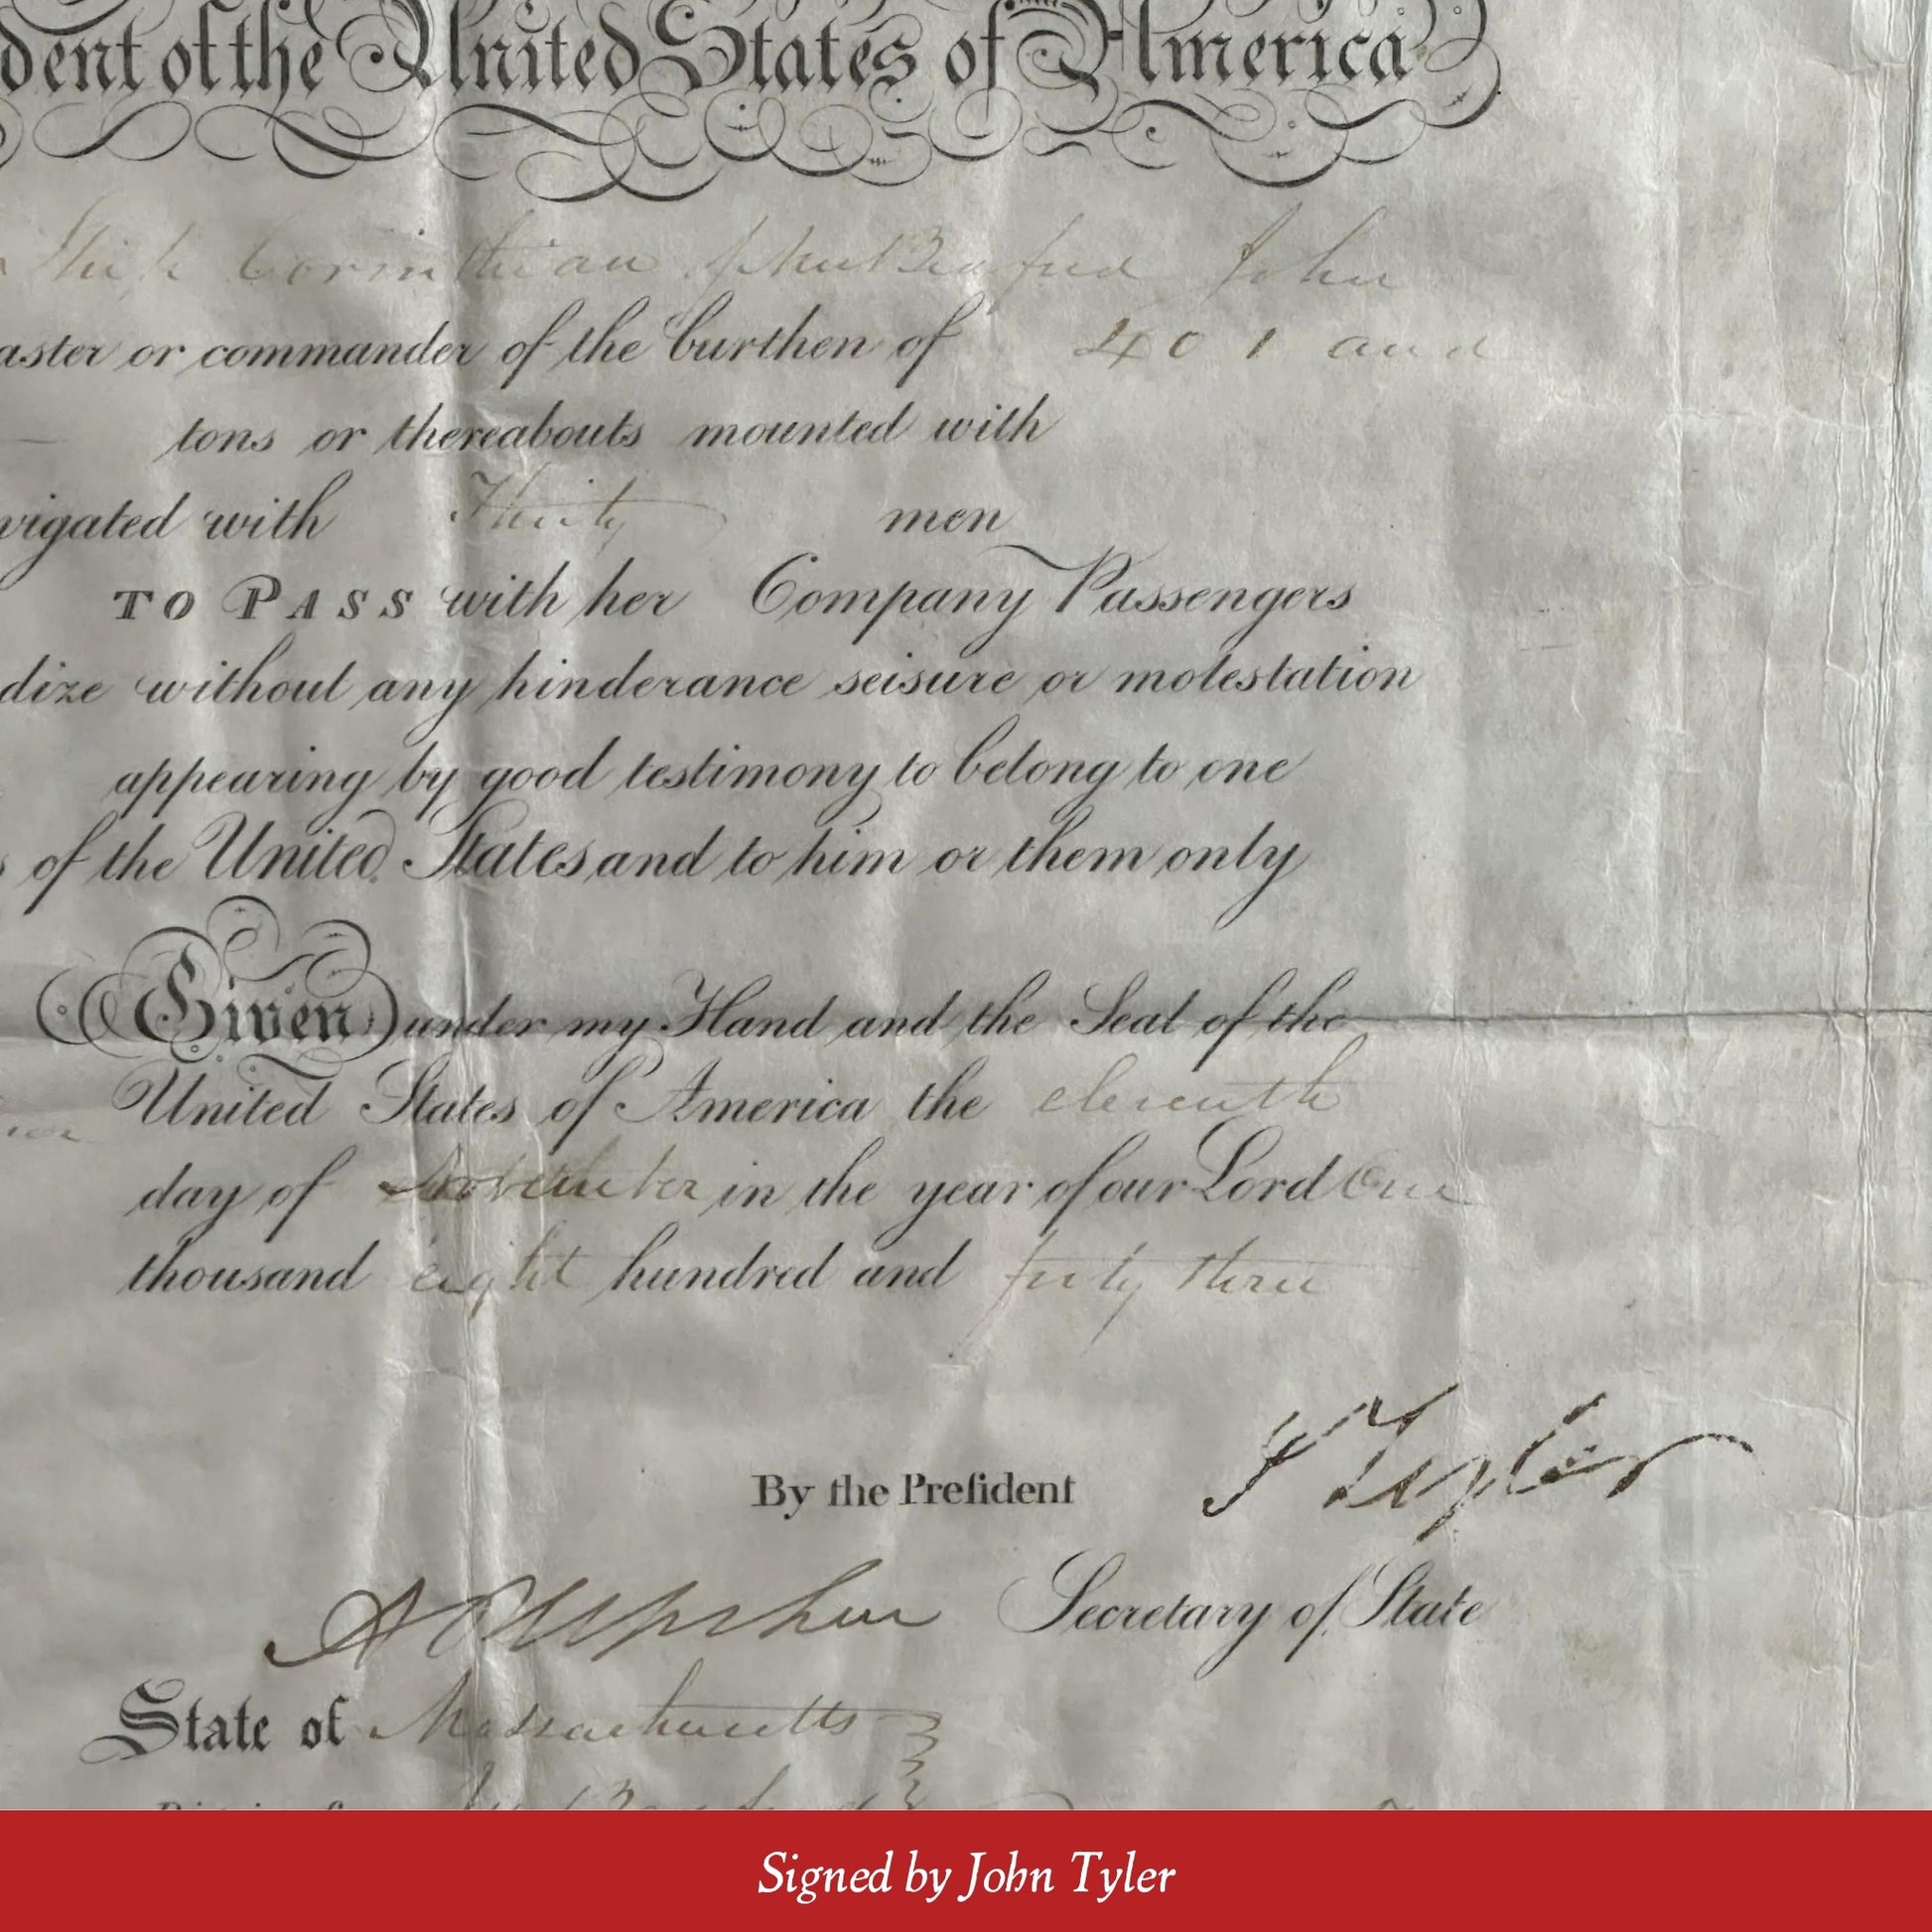 dent of the United States of America
Ship Corinthian of New Bedford John
aster or commander of the burthen of 401 and
tons or thereabouts mounted with
vigated with Thirty men
TO PASS with her Company Passengers
dize without any hinderance seisure or molestation
appearing by good testimony to belong to one
s of the United States and to him or them only
Given under my Hand and the Seal of the
United States of America the eleventh
day of November in the year of our Lord One
thousand eight hundred and forty three
By the Preſident J Tyler
A P Upshur Secretary of State
State of Massachusetts
Signed by John Tyler